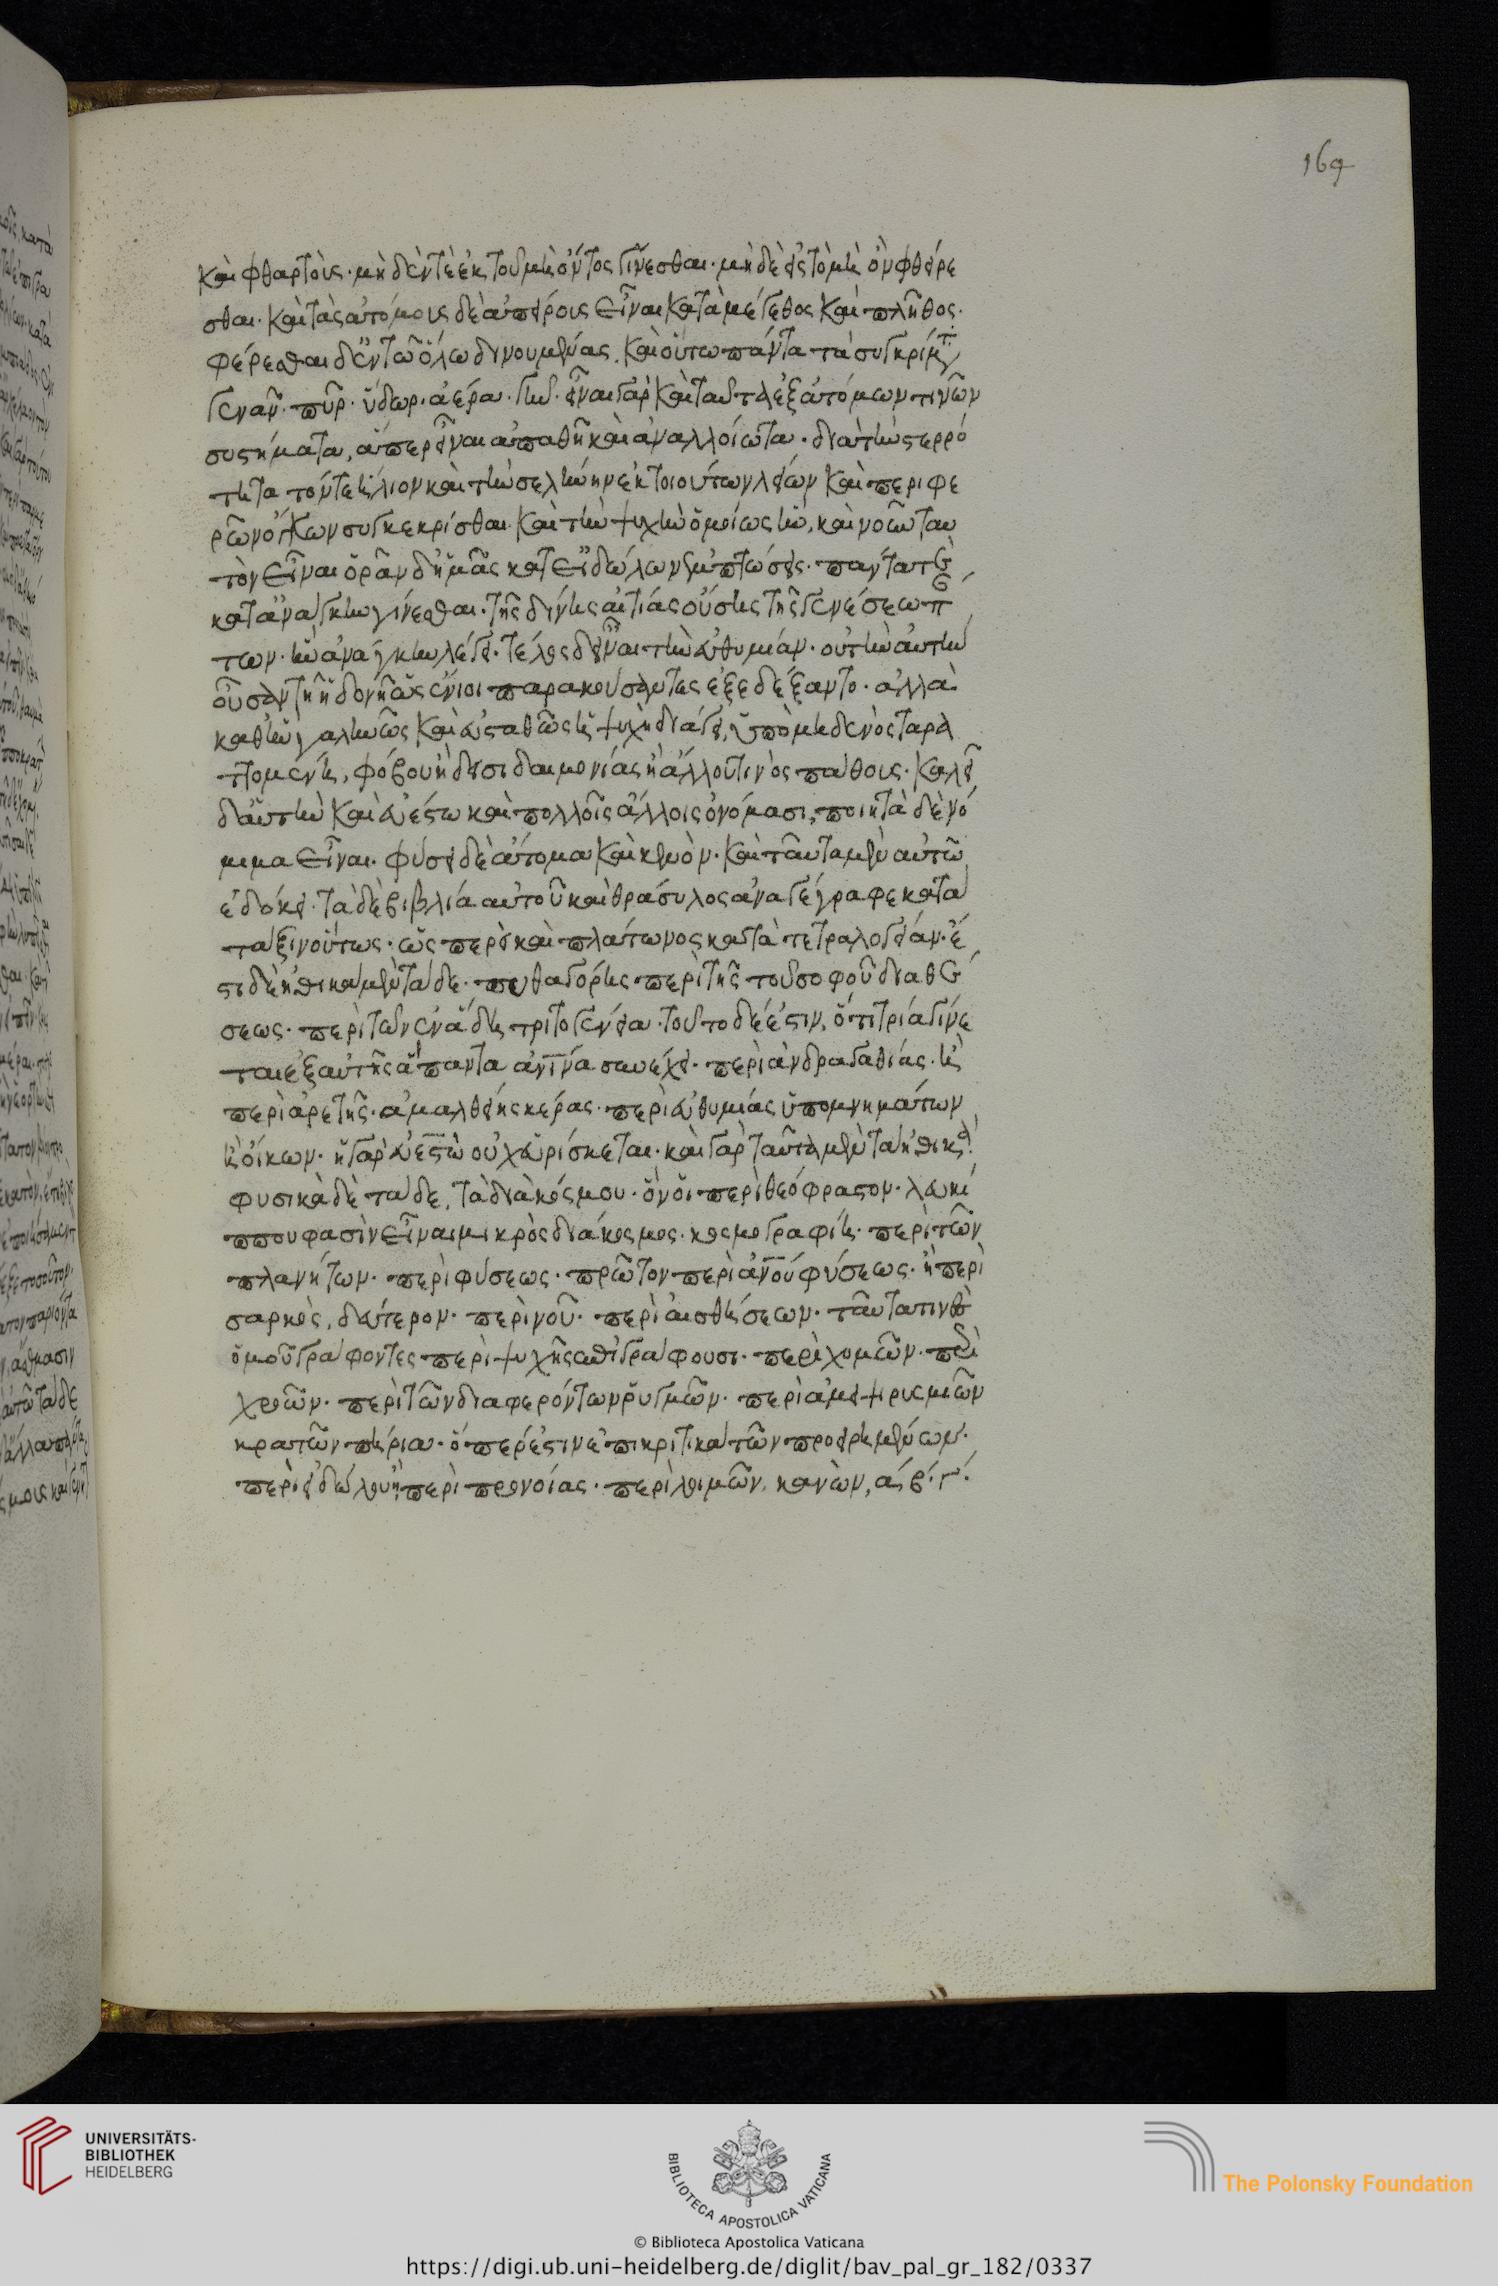 164
καὶ φθαρτοὺς· μηδέν τε ἐκ τοῦ μὴ ὄντος γίνεσθαι· μηδὲ εἰς τὸ μὴ ὂν φθείρε
σθαι· καὶ τὰς ἀτόμους δὲ ἀπείρους εἶναι κατὰ μέγεθος καὶ πλῆθος·
φέρεσθαι δ' ἐν τῶ ὅλω δινουμένας. καὶ οὕτω πάντα τὰ συγκρίμτ
γεναν· πῦρ· ὕδωρ· ἀέρα· γῆν· εἶναι γὰρ καὶ ταῦτα ἐξ ἀτόμων τινῶν
συστήματα, ἅπερ εἶναι ἀπαθῆ καὶ ἀναλλοίωτα· διὰ τὴν στερρό
τητα τόν τε ἥλιον καὶ τὴν σελήνην ἐκ τοιούτων λείων καὶ περιφε
ρῶν ὄγκων συγκεκρίσθαι· καὶ τὴν ψυχὴν ὁμοίως ἣν, καὶ νοῦν ταυ
τὸν εἶναι ὁρᾶν δ' ἡμᾶς κατ' εἰδώλων ἐμπτώσεις· πάντα τε
κατ' ἀνάγκην γίνεσθαι· τῆς δίνης αἰτίας οὔσης τῆς γενέσεω π
των· ἣν ἀνάγκην λέγει· τέλος δ' εἶναι τὴν εὐθυμίαν· οὐ τὴν αὐτὴν
οὖσαν τῆ ἡδονῆ ὡς ἔνιοι παρακούσαντες ἐξεδέξαντο· ἀλλὰ
καθ' ἣν γαληνῶς καὶ εὐσταθῶς ἡ ψυχὴ διάγει, ὑπὸ μηδενὸς ταρα
ττομένη, φόβου ἢ δεισιδαιμονίας ἢ ἄλλου τινὸς πάθους· καλεῖ
δ' αὐτὴν καὶ εὐεστω καὶ πολλοῖς ἄλλοις ὀνόμασι, ποιητὰ δὲ νό
μιμα εἶναι· φύσει δὲ ἄτομα καὶ κενὸν· καὶ ταῦτα μὲν αὐτῶ
ἐδόκει· τὰ δὲ βιβλία αὐτοῦ καὶ θράσυλος ἀναγέγραφε κατὰ
τάξιν οὕτως· ὥς περεὶ καὶ πλάτωνος κατὰ τετραλογείαν· ἔ
στι δὲ ἠθικὰ μὲν τάδε· πυθαγόρης· περὶ τῆς τοῦ σοφοῦ διαθέ
σεως· περὶ τῶν ἐν ἅδη, τριτογένεια· τοῦτο δέ ἐστιν, ὅτι τρία γίνε
ται ἐξ αὐτῆς ἃ πάντα ἀν̅ι̅να συνέχει· περὶ ἀνδραγαθίας· ἢ
περὶ ἀρετῆς· ἀμαλθείης κέρας· περὶ εὐθυμίας ὑπομνημάτων
ἠθίκων· ἡ γὰρ εὐεστὼ οὐχ εὑρίσκεται· καὶ γὰρ ταῦτα μὲν τὰ ἠθικά·
φυσικὰ δὲ τάδε, τὰ διακόσμου· ὃν οἱ περὶ θεόφραστον· λευκί
ππου φασὶν εἶναι μικρὸς διάκοσμος· κοσμογραφίη· περὶ τῶν
πλανήτων· περὶ φύσεως· πρῶτον περὶ ἀν̅ο̅ύ φύσεως· ἢ περὶ
σαρκὸς, δεύτερον· περὶ νοῦ· περὶ αἰσθήσεων· ταῦτα τινὲς
ὁμοῦ γράφοντες περὶ ψυχῆς ἐπιγράφουσι· περὶ χυμῶν· περὶ
χροῶν· περὶ τῶν διαφερόντων ῥυσμῶν· περὶ ἀμειψιρυσμιῶν
κρατυντήρια· ὅπερ ἐστὶν ἐπικριτικὰ τῶν προειρημένων·
περὶ εἰδώλου ἢ περὶ προνοίας· περὶ λοιμῶν, κανὼν, α, β· γ·
UNIVERSITÄTS-
BIBLIOTHEK
HEIDELBERG
BIBLIOTECA APOSTOLICA VATICANA
The Polonsky Foundation
© Biblioteca Apostolica Vaticana
https://digi.ub.uni-heidelberg.de/diglit/bav_pal_gr_182/0337